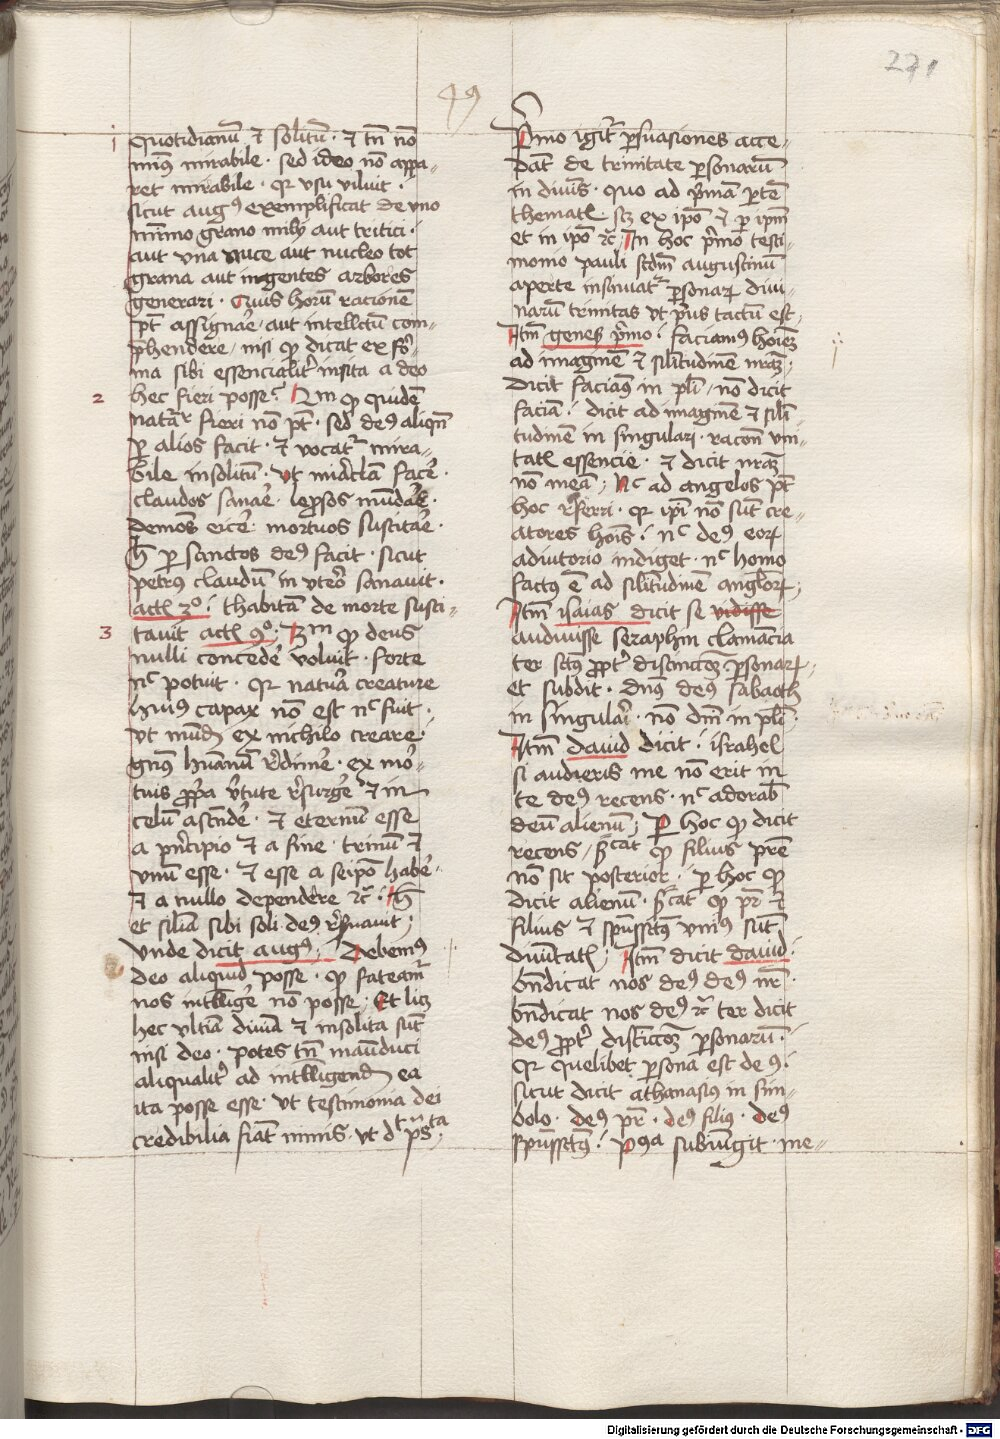 271
49
i quotidianū et solitū · et tn̄ nō
minꝰ mirabile · sed ideo nō appa-
ret mirabile · qr usu viluit ·
sicut augꝰ exemplificat de uno
minimo grano milij aut tritici ·
aut una nuce aut nucleo tot
grana aut ingentes arbores
generari · Quis horū rationē
pt̄ assignar̄e aut intellectū com-
p̄hendere / nisi qꝫ dicat ex for-
ma sibi essencialit̄ insita a deo
2 hec fieri posse · 2m qꝫ quidē
natar fieri nō pt̄ · sed deꝰ aliqn̄
ꝑ alios facit · et vocatr mira-
bile insolitū · ut miracl̄a facē ·
claudos sanaē · leprosos mūdaē ·
demoēs eicē · mortuos suscitaē ·
h̄ ꝑ sanctos deꝰ facit · sicut
petrꝰ claudū in uteō sanavit ·
actꝫ 3o · thabitā de morte susci-
3 tavit actꝫ 9o · 3m qꝫ deus
nulli concedē voluit · forte
nc potuit · qr natura creature
huiꝰ capax nō est nc fuit ·
ut mūdꝫ ex nichilo creare ·
genꝰ humanū redimē · ex mor-
tuis ppa v̄tute resurgē et in
celū ascendē · et eternū esse
a pn̄cipio et a fine · trinū et
unū esse · et esse a seipō habē ·
et a nullo dependēre rc̄ · h̄
et silīa sibi soli deꝰ reservavit ·
unde dicit augꝰ · Debemꝰ
deo aliquid posse · qꝫ fateamr
nos intellige nō posse · Et licꝫ
hec ultīa divīa et insolita sūt
nisi deo · potes tn̄ manūduci
aliqualit̄ ad intelligendū ea
ita posse esse · ut testimonia dei
credibilia fiāt nimis · ut dt ps̄ta
Primo igit̄ ꝑsuasiones acce-
dāt de trinitate ꝑsonarū
in divīs · quo ad p̄mā ptē
thematꝫ scꝫ ex ipō et ꝑ ipm̄
et in ipō rc̄ · In hoc p̄mo testi-
monio pauli scdm̄ augustinū
aperte insinuatr ꝑsonarꝫ divi-
narū trinitas ut p̄us tactū est ·
Itm̄ geneꝫ p̄mo · faciamꝰ hoīem
ad imaginē et similitudinē nrāꝫ ·
Dicit faciamꝰ in pl̄i / nō dicit
faciā · dicit ad imaginē et simili-
tudinē in singulari · racōn uni-
tatꝫ essencie · et dicit nrāꝫ
nō meā · Nc ad angelos pt̄
hoc referri · qr ipī nō sūt cre-
atores hoīs · nc deꝰ eorꝫ
adiutorio indiget · nc homo
factꝰ ē ad similitudinē anglorꝫ ·
Itm̄ isaias dicit se vidisse
audivisse seraphin clamācia
ter sctūs ppt̄ distinctōem ꝑsonarꝫ ·
et subdit · dn̄s deꝰ sabaoth
in singulari · nō dnī in pl̄i ·
Itm̄ david dicit · israhel
si audieris me nō erit in
te deꝰ recens · nc adorab̄
deū alienū · Per hoc qꝫ dicit
recens / sig̅cat qꝫ filius prē
nō sit posterior · ꝑ hoc qꝫ
dicit alienū · sig̅cat qꝫ pr̄ et
filius et spūssctūs uniꝰ sūt
divinitatꝫ · Itm̄ dicit david ·
bn̄dicat nos deꝰ deꝰ nr̄ ·
bn̄dicat nos deꝰ rc̄ ter dicit
deꝰ ppt̄ distinctōem ꝑsonarū ·
qr quelibet ꝑsona est deꝰ ·
sicut dicit athanasiꝰ in sim-
bolo · deꝰ pr̄ · deꝰ filiꝰ · deꝰ
spūssctūs · ꝓqa subiūgit · me-
Digitalisierung gefördert durch die Deutsche Forschungsgemeinschaft - DFG